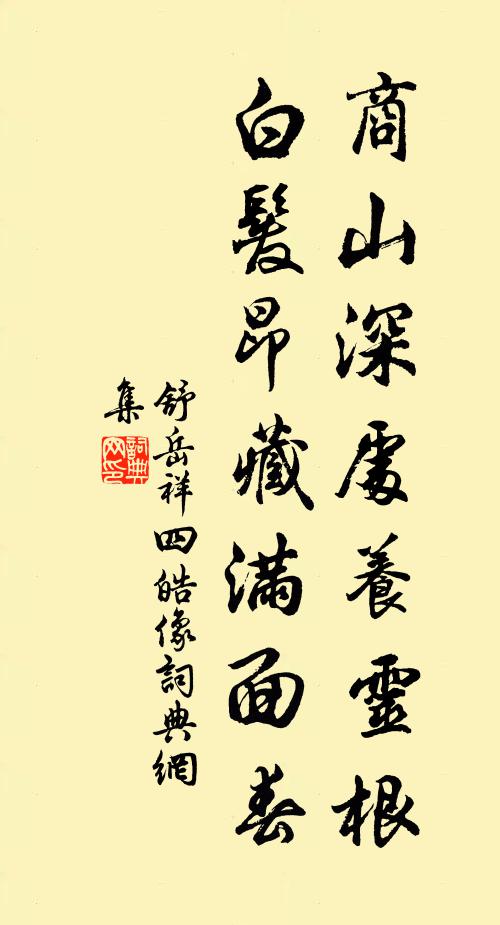 商山深處養靈根
白髮昂藏滿面春
舒岳祥四皓像詞典網
集
詞典
网印